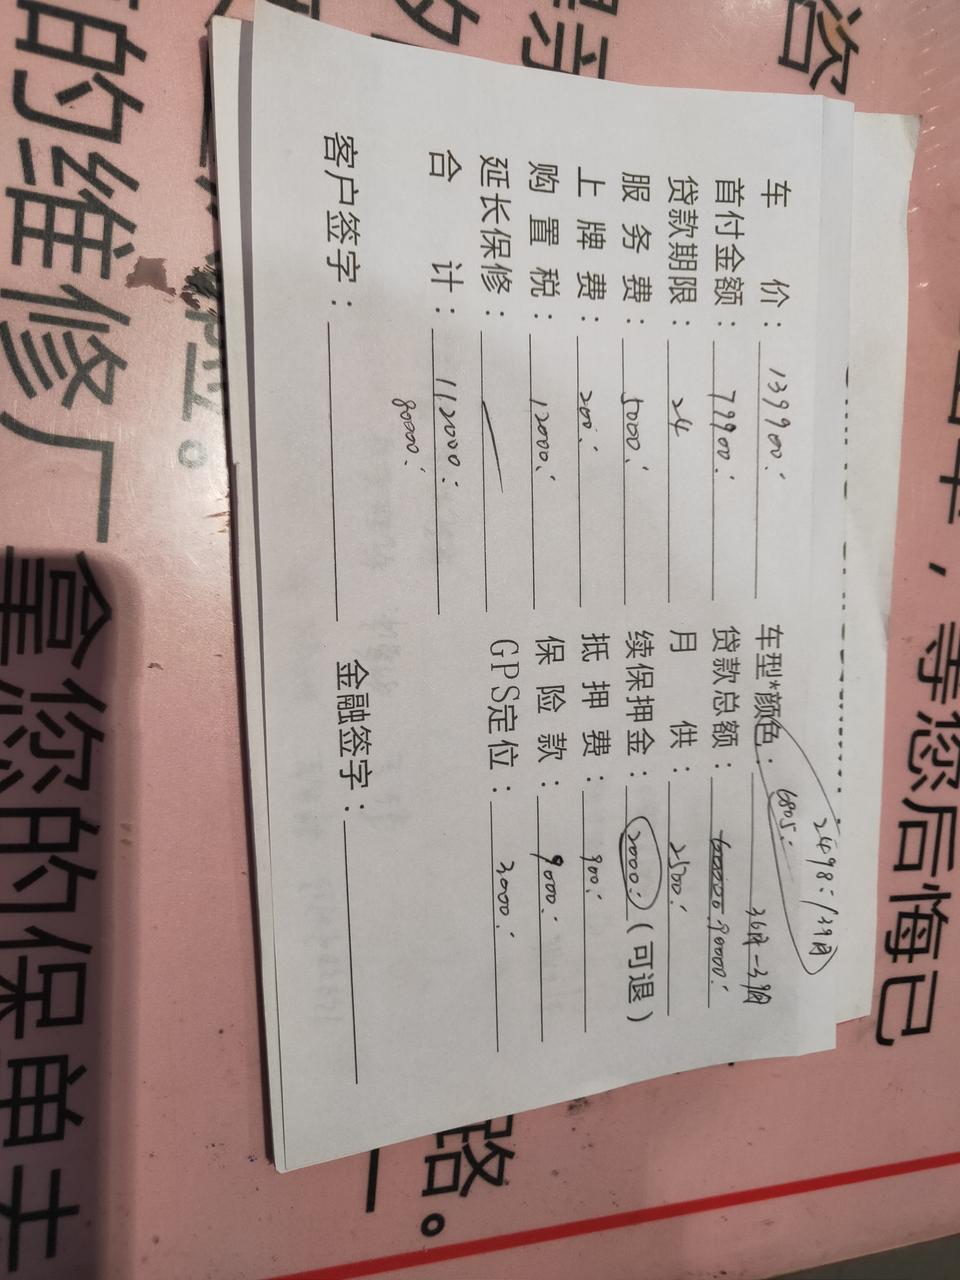 车价：139900：
车型*颜色：
2498：/39月
6805：
36月-39月
首付金额：79900：
贷款总额：90000：
贷款期限：24
月供：2500：
服务费：5000：
续保押金：2000：（可退）
上牌费：200：
抵押费：900：
购置税：12000：
保险款：9000：
延长保修：
GPS定位：3000：
合计：112000：
80000：
客户签字：
金融签字：
的维修厂
拿您的保单去
，等您后悔已
咨
路。